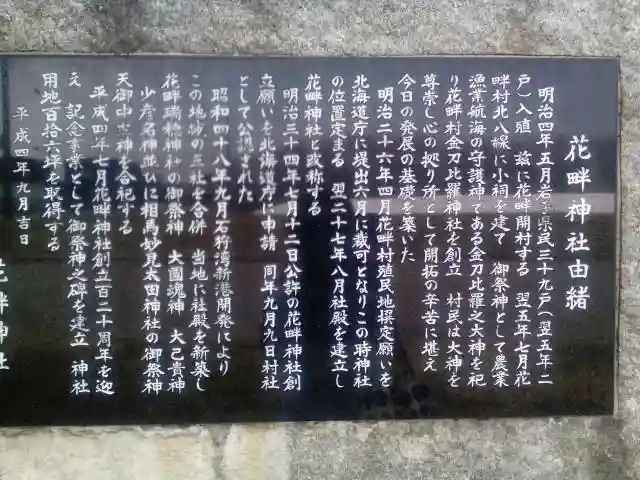 花畔神社由緒
明治四年五月岩手県民三十九戸(翌五年二
戸)入殖 茲に花畔開村する 翌五年七月花
畔村北八線に小祠を建て 御祭神として農業
漁業航海の守護神である金刀比羅之大神を祀
り花畔村金刀比羅神社を創立 村民は大神を
尊崇し心の拠り所として開拓の辛苦に堪え
今日の発展の基礎を築いた
明治二十六年四月花畔村殖民地撰定願いを
北海道庁に提出六月に裁可となりこの時神社
の位置定まる 翌二十七年八月社殿を建立し
花畔神社と改称する
明治三十四年七月十二日公許の花畔神社創
立願いを北海道庁に申請 同年九月九日村社
として公認された
昭和四十八年九月石狩湾新港開発により
この地域の三社を合併 当地に社殿を新築し
花畔瑞穂神社の御祭神 大國魂神 大己貴神
少彦名神並びに相馬妙見太田神社の御祭神
天御中主神を合祀する
平成四年七月花畔神社創立百二十周年を迎
え 記念事業として御祭神之碑を建立 神社
用地百拾六坪を取得する
平成四年九月吉日
花畔神社